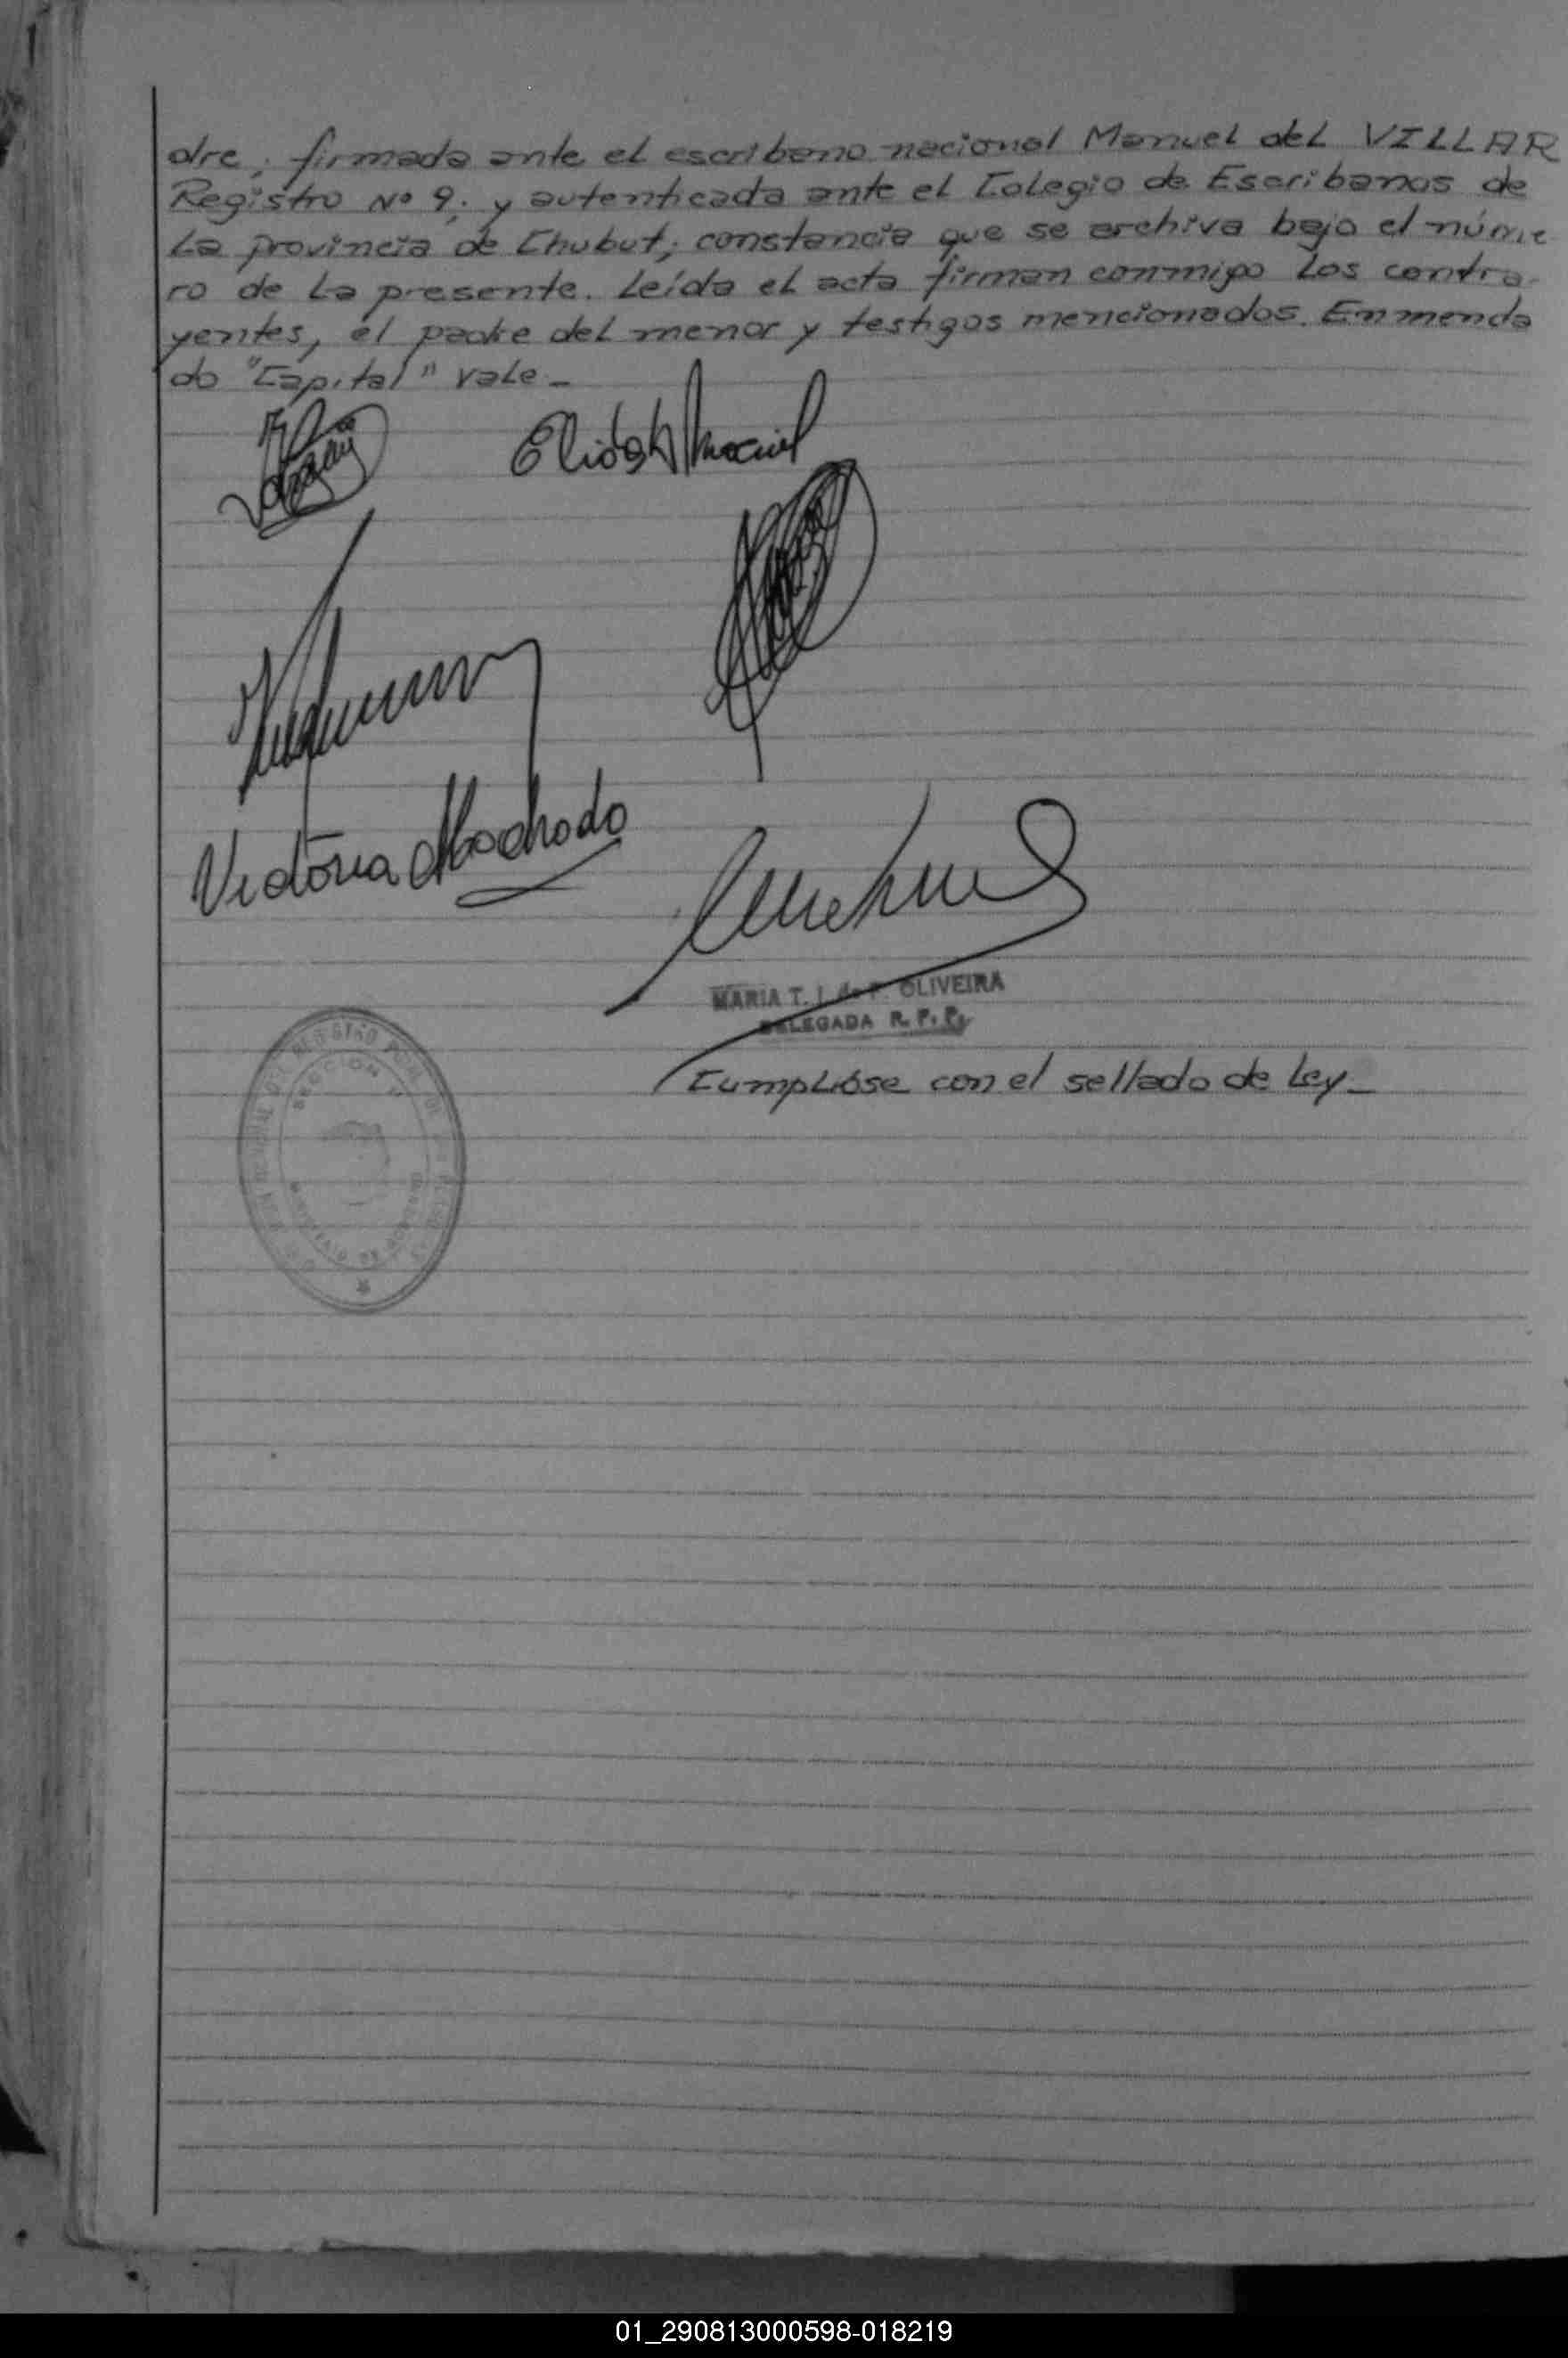 dre; firmada ante el escribano nacional Manuel del VILLAR
Registro Nº 9; y autenticada ante el Colegio de Escribanos de
La provincia de Chubut; constancia que se archiva bajo el núme
ro de La presente. Leída el acta firman conmigo Los contra-
yentes, el padre del menor y testigos mencionados. Enmenda
do "Capital" vale_
Elida Maciel
Victoria Machado
MARIA T. OLIVEIRA
DELEGADA R. P. P.
Cumplióse con el sellado de Ley_
REGISTRO
SECCION
01_290813000598-018219